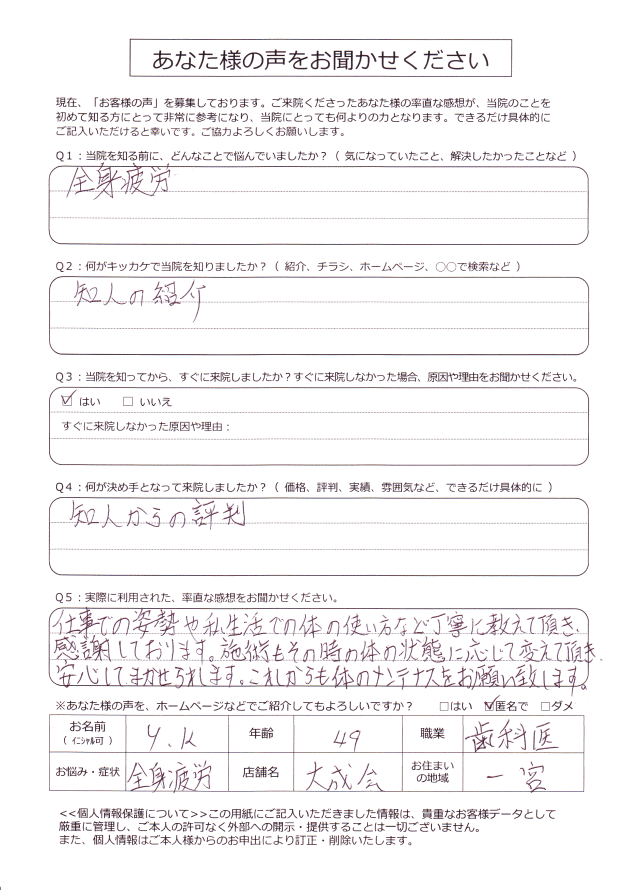 あなた様の声をお聞かせください
現在、「お客様の声」を募集しております。ご来院くださったあなた様の率直な感想が、当院のことを
初めて知る方にとって非常に参考になり、当院にとっても何よりの力となります。できるだけ具体的に
ご記入いただけると幸いです。ご協力よろしくお願いします。
Q1：当院を知る前に、どんなことで悩んでいましたか？（ 気になっていたこと、解決したかったことなど ）
全身疲労
Q2：何がキッカケで当院を知りましたか？（ 紹介、チラシ、ホームページ、○○で検索など ）
知人の紹介
Q3：当院を知ってから、すぐに来院しましたか？すぐに来院しなかった場合、原因や理由をお聞かせください。
☑ はい □ いいえ
すぐに来院しなかった原因や理由：
Q4：何が決め手となって来院しましたか？（ 価格、評判、実績、雰囲気など、できるだけ具体的に ）
知人からの評判
Q5：実際に利用された、率直な感想をお聞かせください。
仕事での姿勢や私生活での体の使い方など丁寧に教えて頂き、
感謝しております。施術もその時の体の状態に応じて変えて頂き、
安心してまかせられます。これからも体のメンテナスをお願い致します。
※あなた様の声を、ホームページなどでご紹介してもよろしいですか？ □はい ☑匿名で □ダメ
お名前（ イニシャル可 ） Y.K 年齢 49 職業 歯科医
お悩み・症状 全身疲労 店舗名 大成会 お住まいの地域 一宮
<<個人情報保護について>>この用紙にご記入いただきました情報は、貴重なお客様データとして
厳重に管理し、ご本人の許可なく外部への開示・提供することは一切ございません。
また、個人情報はご本人様からのお申出により訂正・削除いたします。